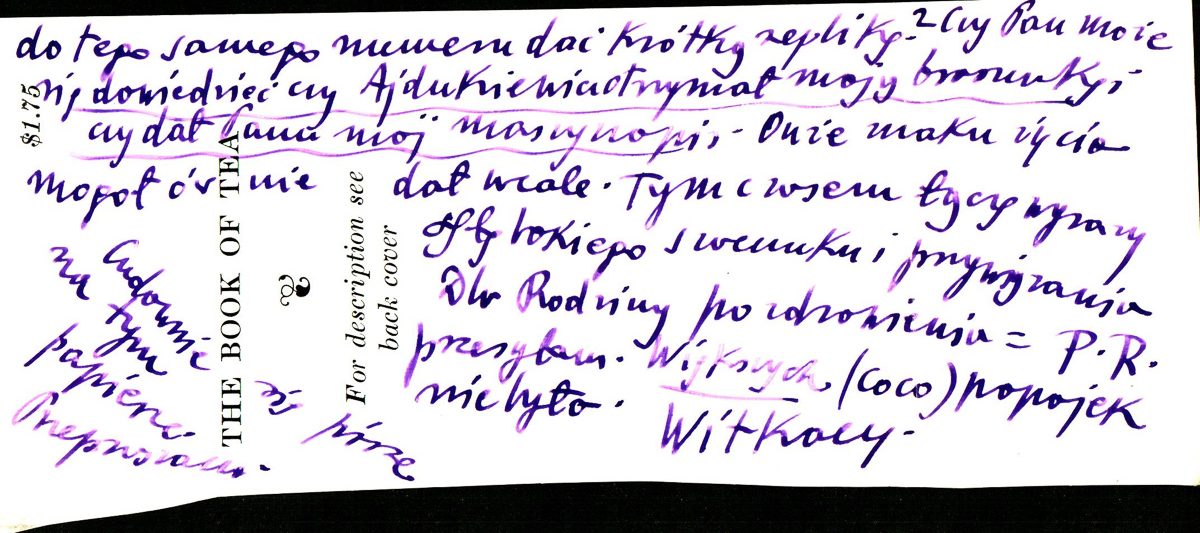 do tego samego numeru dać krótką replikę. 2 Czy Pan może
się dowiedzieć czy Ajdukiewicz otrzymał moją broszurkę i
czy dał Panu mój maszynopis. On ie znaku życia
mogół ów nie dał wcale. Tymczasem łączę wyrazy
głębokiego szacunku i przywiązania
Dla Rodziny pozdrowienia = P.R.
przesyłam. Większych (coco) popojek
nie było.
Witkacy.
Cudownie
na tym
papierze
się pisze
Przepraszam.
$1.75
THE BOOK OF TEA
For description see
back cover